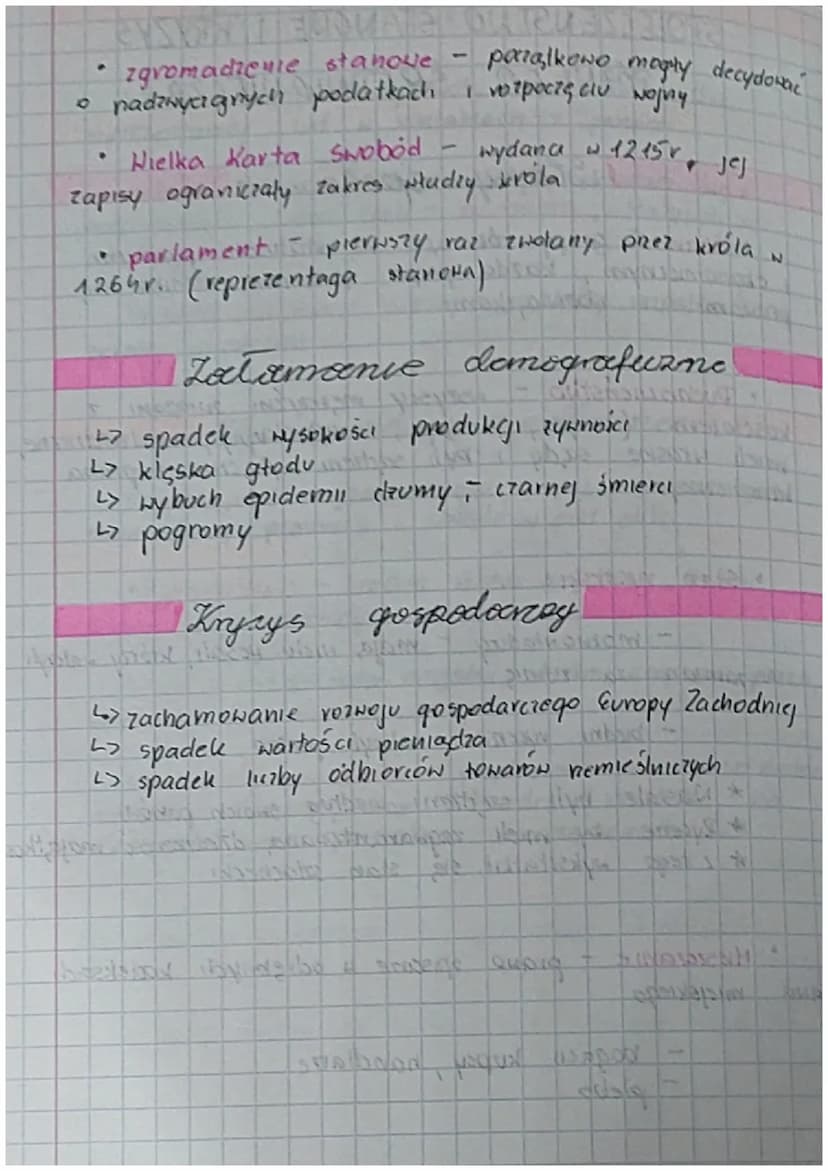 • zgromadzenie stanowe – początkowo mogły decydować
o nadzwyczajnych podatkach i rozpoczęciu wojny
• Wielka Karta Swobód – wydana w 1215r, jej
zapisy ograniczały zakres władzy króla
• parlament – pierwszy raz zwołany przez króla w
1264r. (reprezentacja stanowa)
Załamanie demograficzne
↳ spadek wysokości produkcji żywności
↳ klęska głodu
↳ wybuch epidemii dżumy – czarnej śmierci
↳ pogromy
Kryzys gospodarczy
↳ zachamowanie rozwoju gospodarczego Europy Zachodniej
↳ spadek wartości pieniądza
↳ spadek liczby odbiorców towarów rzemieślniczych